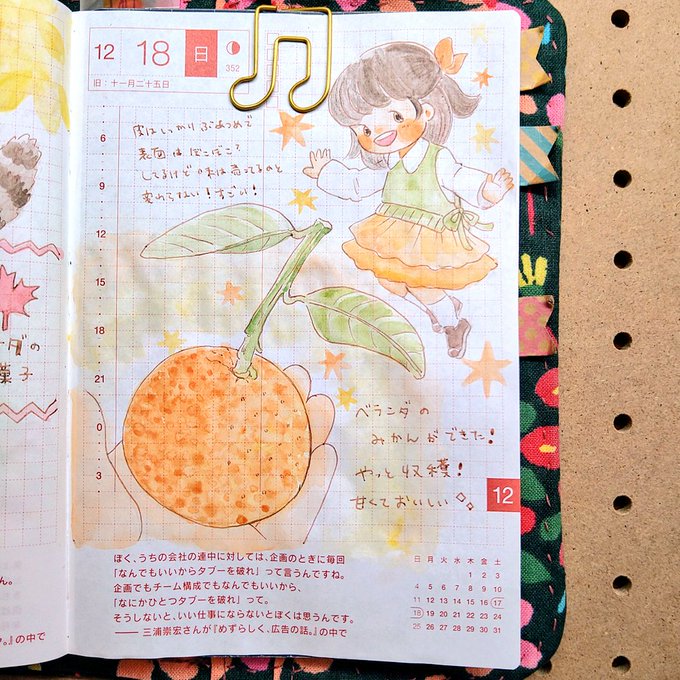 12 18 日
352
旧:十一月二十五日
皮はしっかりぶあつめで
表面はぼこぼこ?
してるけど味は売ってるのと
変わらない!すごい!
6
9
12
15
18
21
0
3
ダの
菓子
ベランダの
みかんができた!
やっと収穫!
甘くておいしい
12
ぼく、うちの会社の連中に対しては、企画のときに毎回
「なんでもいいからタブーを破れ」って言うんですね。
企画でもチーム構成でもなんでもいいから、
「なにかひとつタブーを破れ」って。
そうしないと、いい仕事にならないとぼくは思うんです。
——三浦崇宏さんが『めずらしく、広告の話。』の中で
日 月 火 水 木 金 土
1 2 3
4 5 6 7 8 9 10
11 12 13 14 15 16 17
18 19 20 21 22 23 24
25 26 27 28 29 30 31
ん。
。』の中で